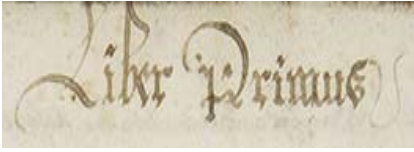 Liber Primus